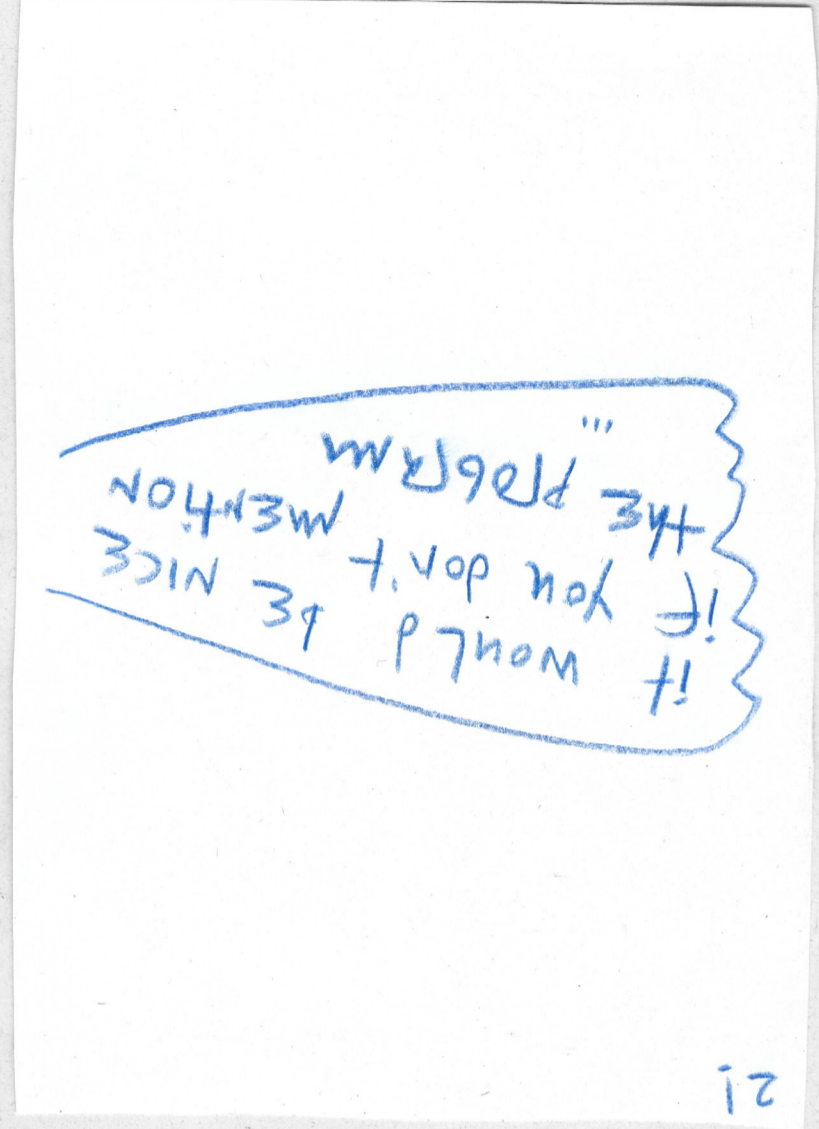 21
it WOULd bE NICE
if you don't MENtiON
tHE PROGRAM
...